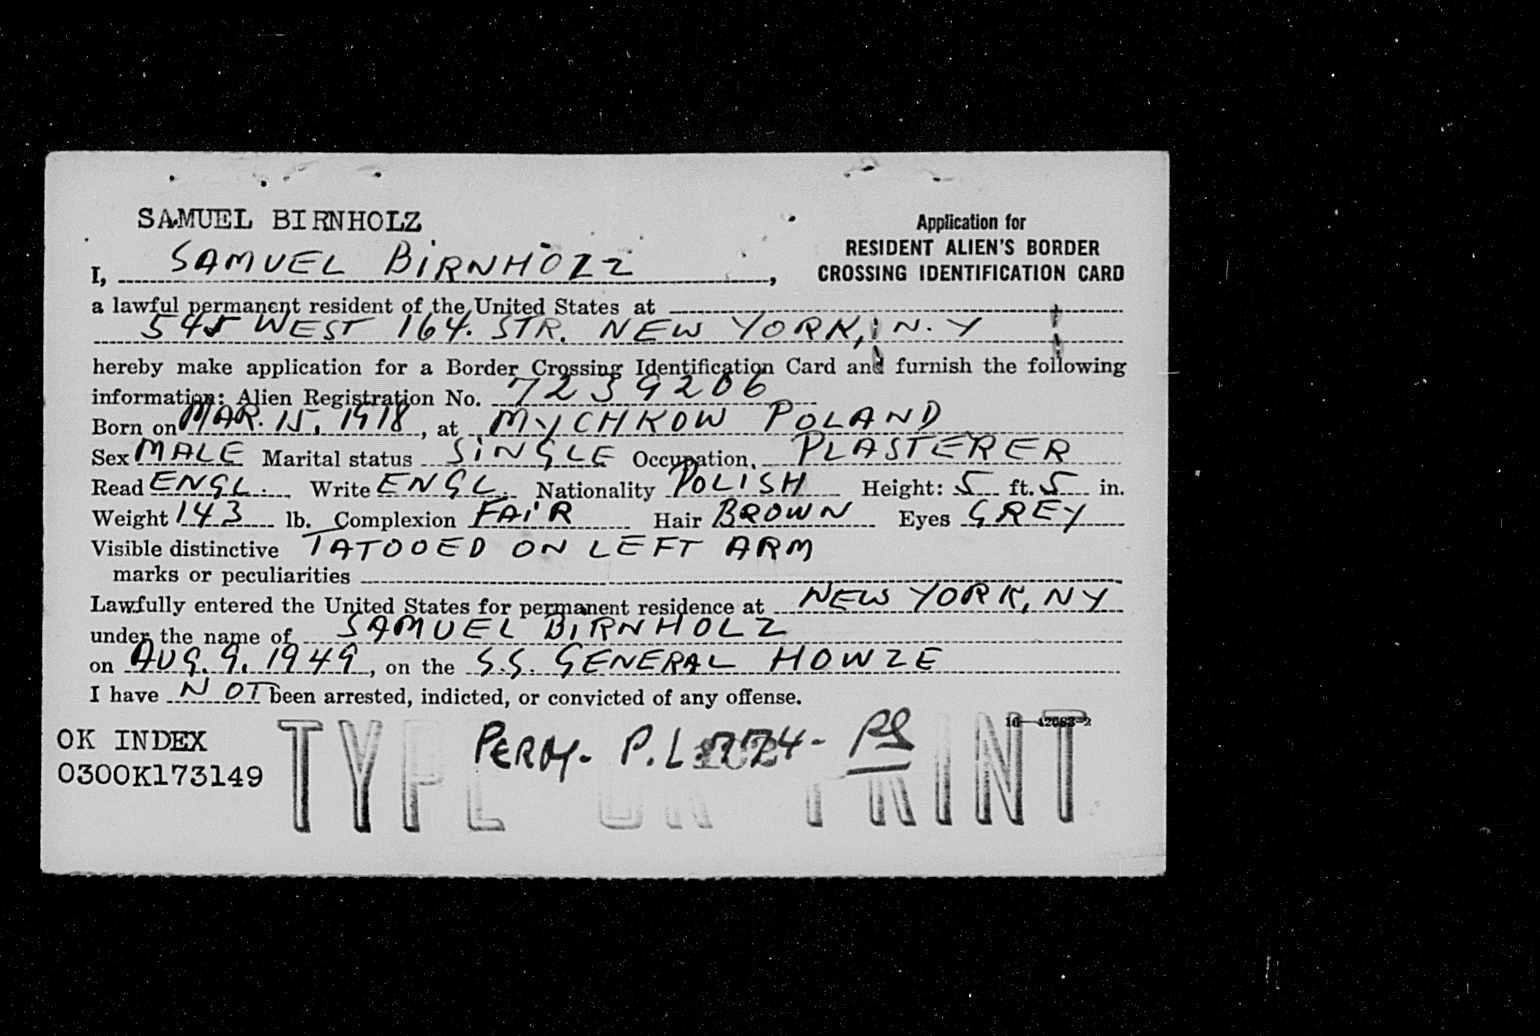 SAMUEL BIRNHOLZ
Application for
RESIDENT ALIEN'S BORDER
CROSSING IDENTIFICATION CARD
I, SAMUEL BIRNHOLZ,
a lawful permanent resident of the United States at
545 WEST 164. STR. NEW YORK, N.Y
hereby make application for a Border Crossing Identification Card and furnish the following
information: Alien Registration No. 7239206
Born on MAR. 15, 1918, at MYCHKOW POLAND
Sex MALE Marital status SINGLE Occupation. PLASTERER
Read ENGL. Write ENGL. Nationality POLISH Height: 5 ft. 5 in.
Weight 143 lb. Complexion FAIR Hair BROWN Eyes GREY
Visible distinctive TATOOED ON LEFT ARM
marks or peculiarities
Lawfully entered the United States for permanent residence at NEW YORK, NY
under the name of SAMUEL BIRNHOLZ
on AUG. 9. 1949, on the S.S. GENERAL HOWZE
I have NOT been arrested, indicted, or convicted of any offense.
16—42083-2
OK INDEX PERM. P.L. 774-
0300K173149
TYPE OR PRINT